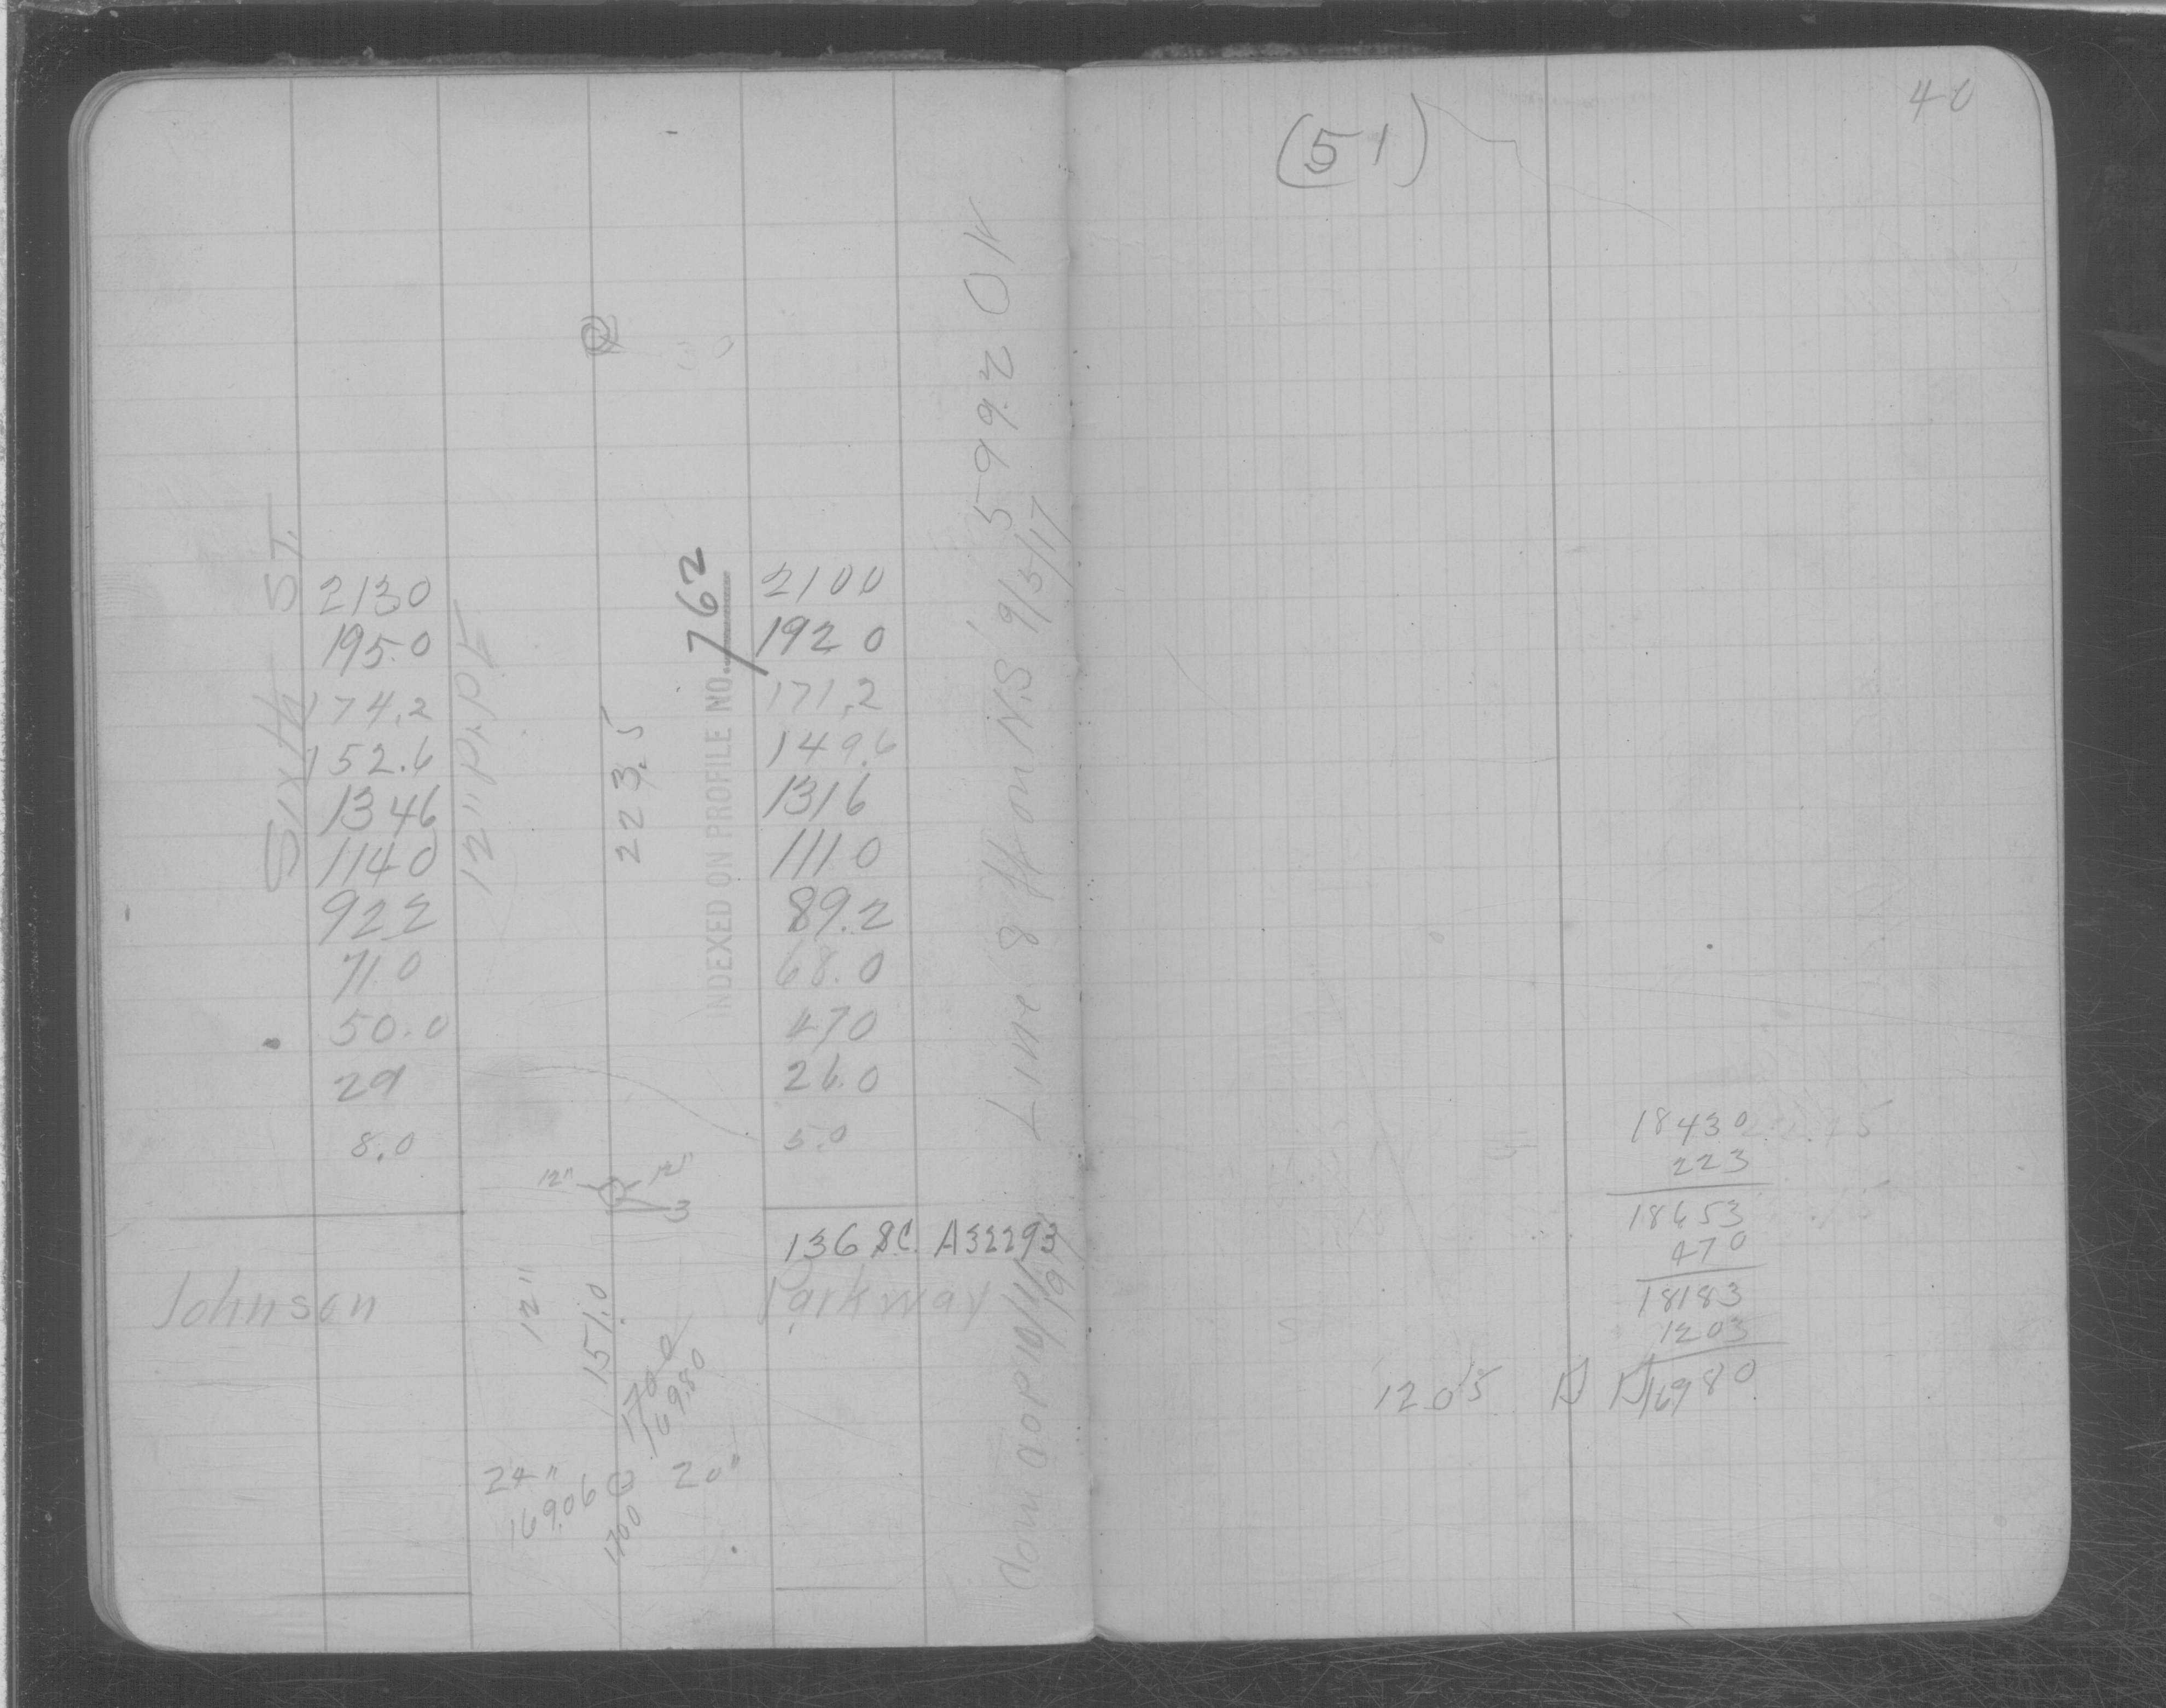 Sixth ST.
2130
195.0
174.2
152.6
1346
1140
922
71.0
50.0
29
8.0
12" pipe
223.5
INDEXED ON PROFILE NO. 762
2100
1920
171.2
149.6
1316
1110
89.2
68.0
470
26.0
5.0
Line 8 ft on N.S 9/5/17
599.2 OK
12" 12"
3
136 S.C. A32293
Johnson
12"
151.0
Parkway
1700
169.80
24"
169.06
20"
1700
10/11/
(51)
40
18430
223
18653
470
18183
1203
16980
1205